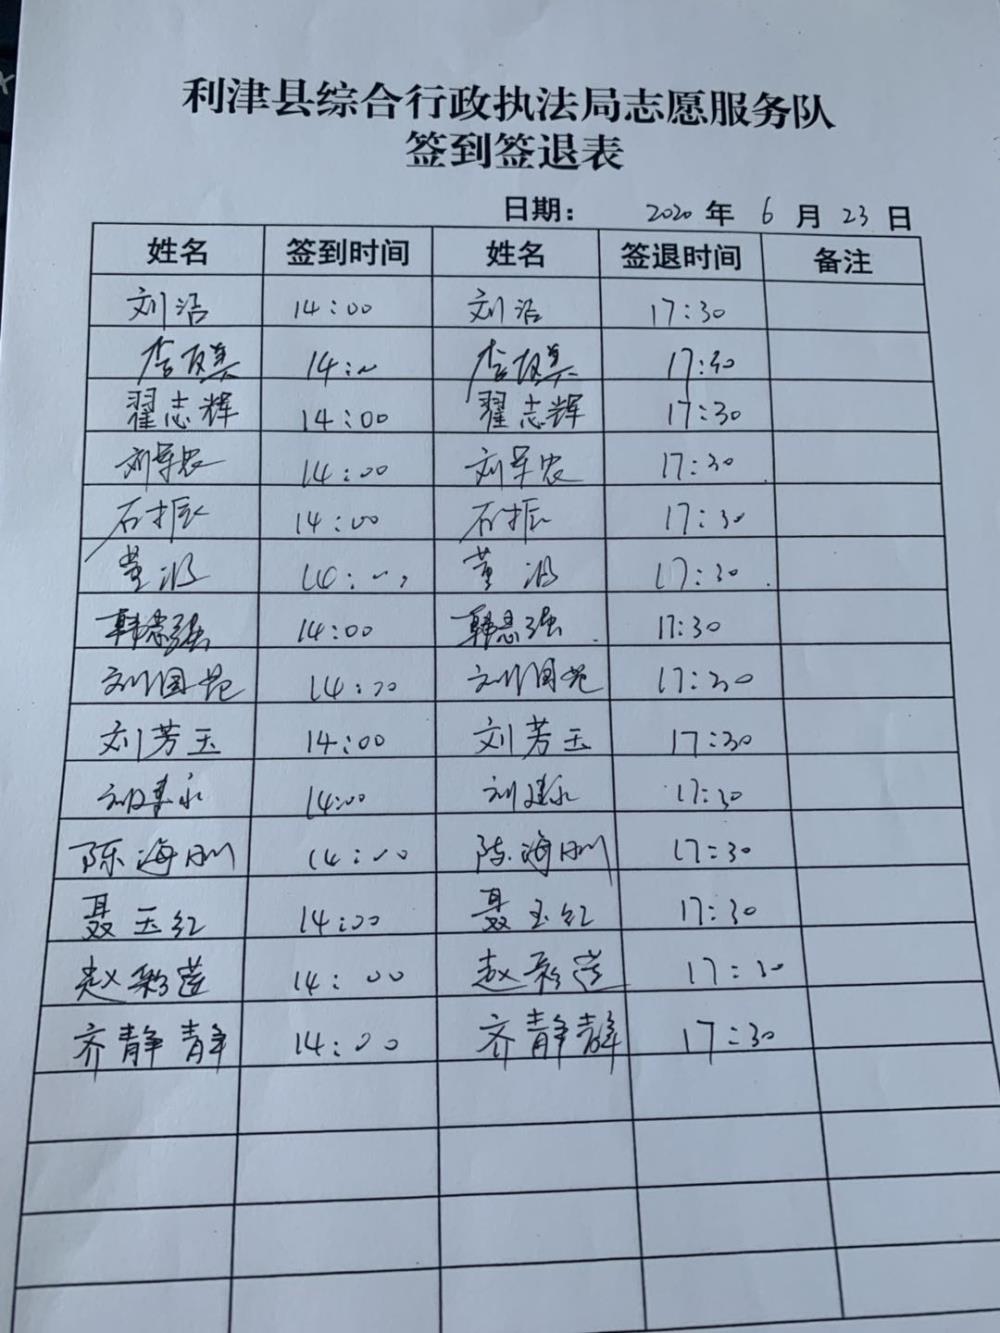 利津县综合行政执法局志愿服务队
签到签退表
日期: 2020 年 6 月 23 日
姓名 签到时间 姓名 签退时间 备注
刘浩 14:00 刘浩 17:30
14:00 17:30
翟志辉 14:00 翟志辉 17:30
刘军农 14:00 刘军农 17:30
石振 14:00 石振 17:30
董波 14:00 董波 17:30
韩忠强 14:00 韩忠强 17:30
刘国苑 14:00 刘国苑 17:30
刘芳玉 14:00 刘芳玉 17:30
刘建永 14:00 刘建永 17:30
陈海刚 14:00 陈海刚 17:30
聂玉红 14:00 聂玉红 17:30
赵彩莲 14:00 赵彩莲 17:30
齐静静 14:00 齐静静 17:30